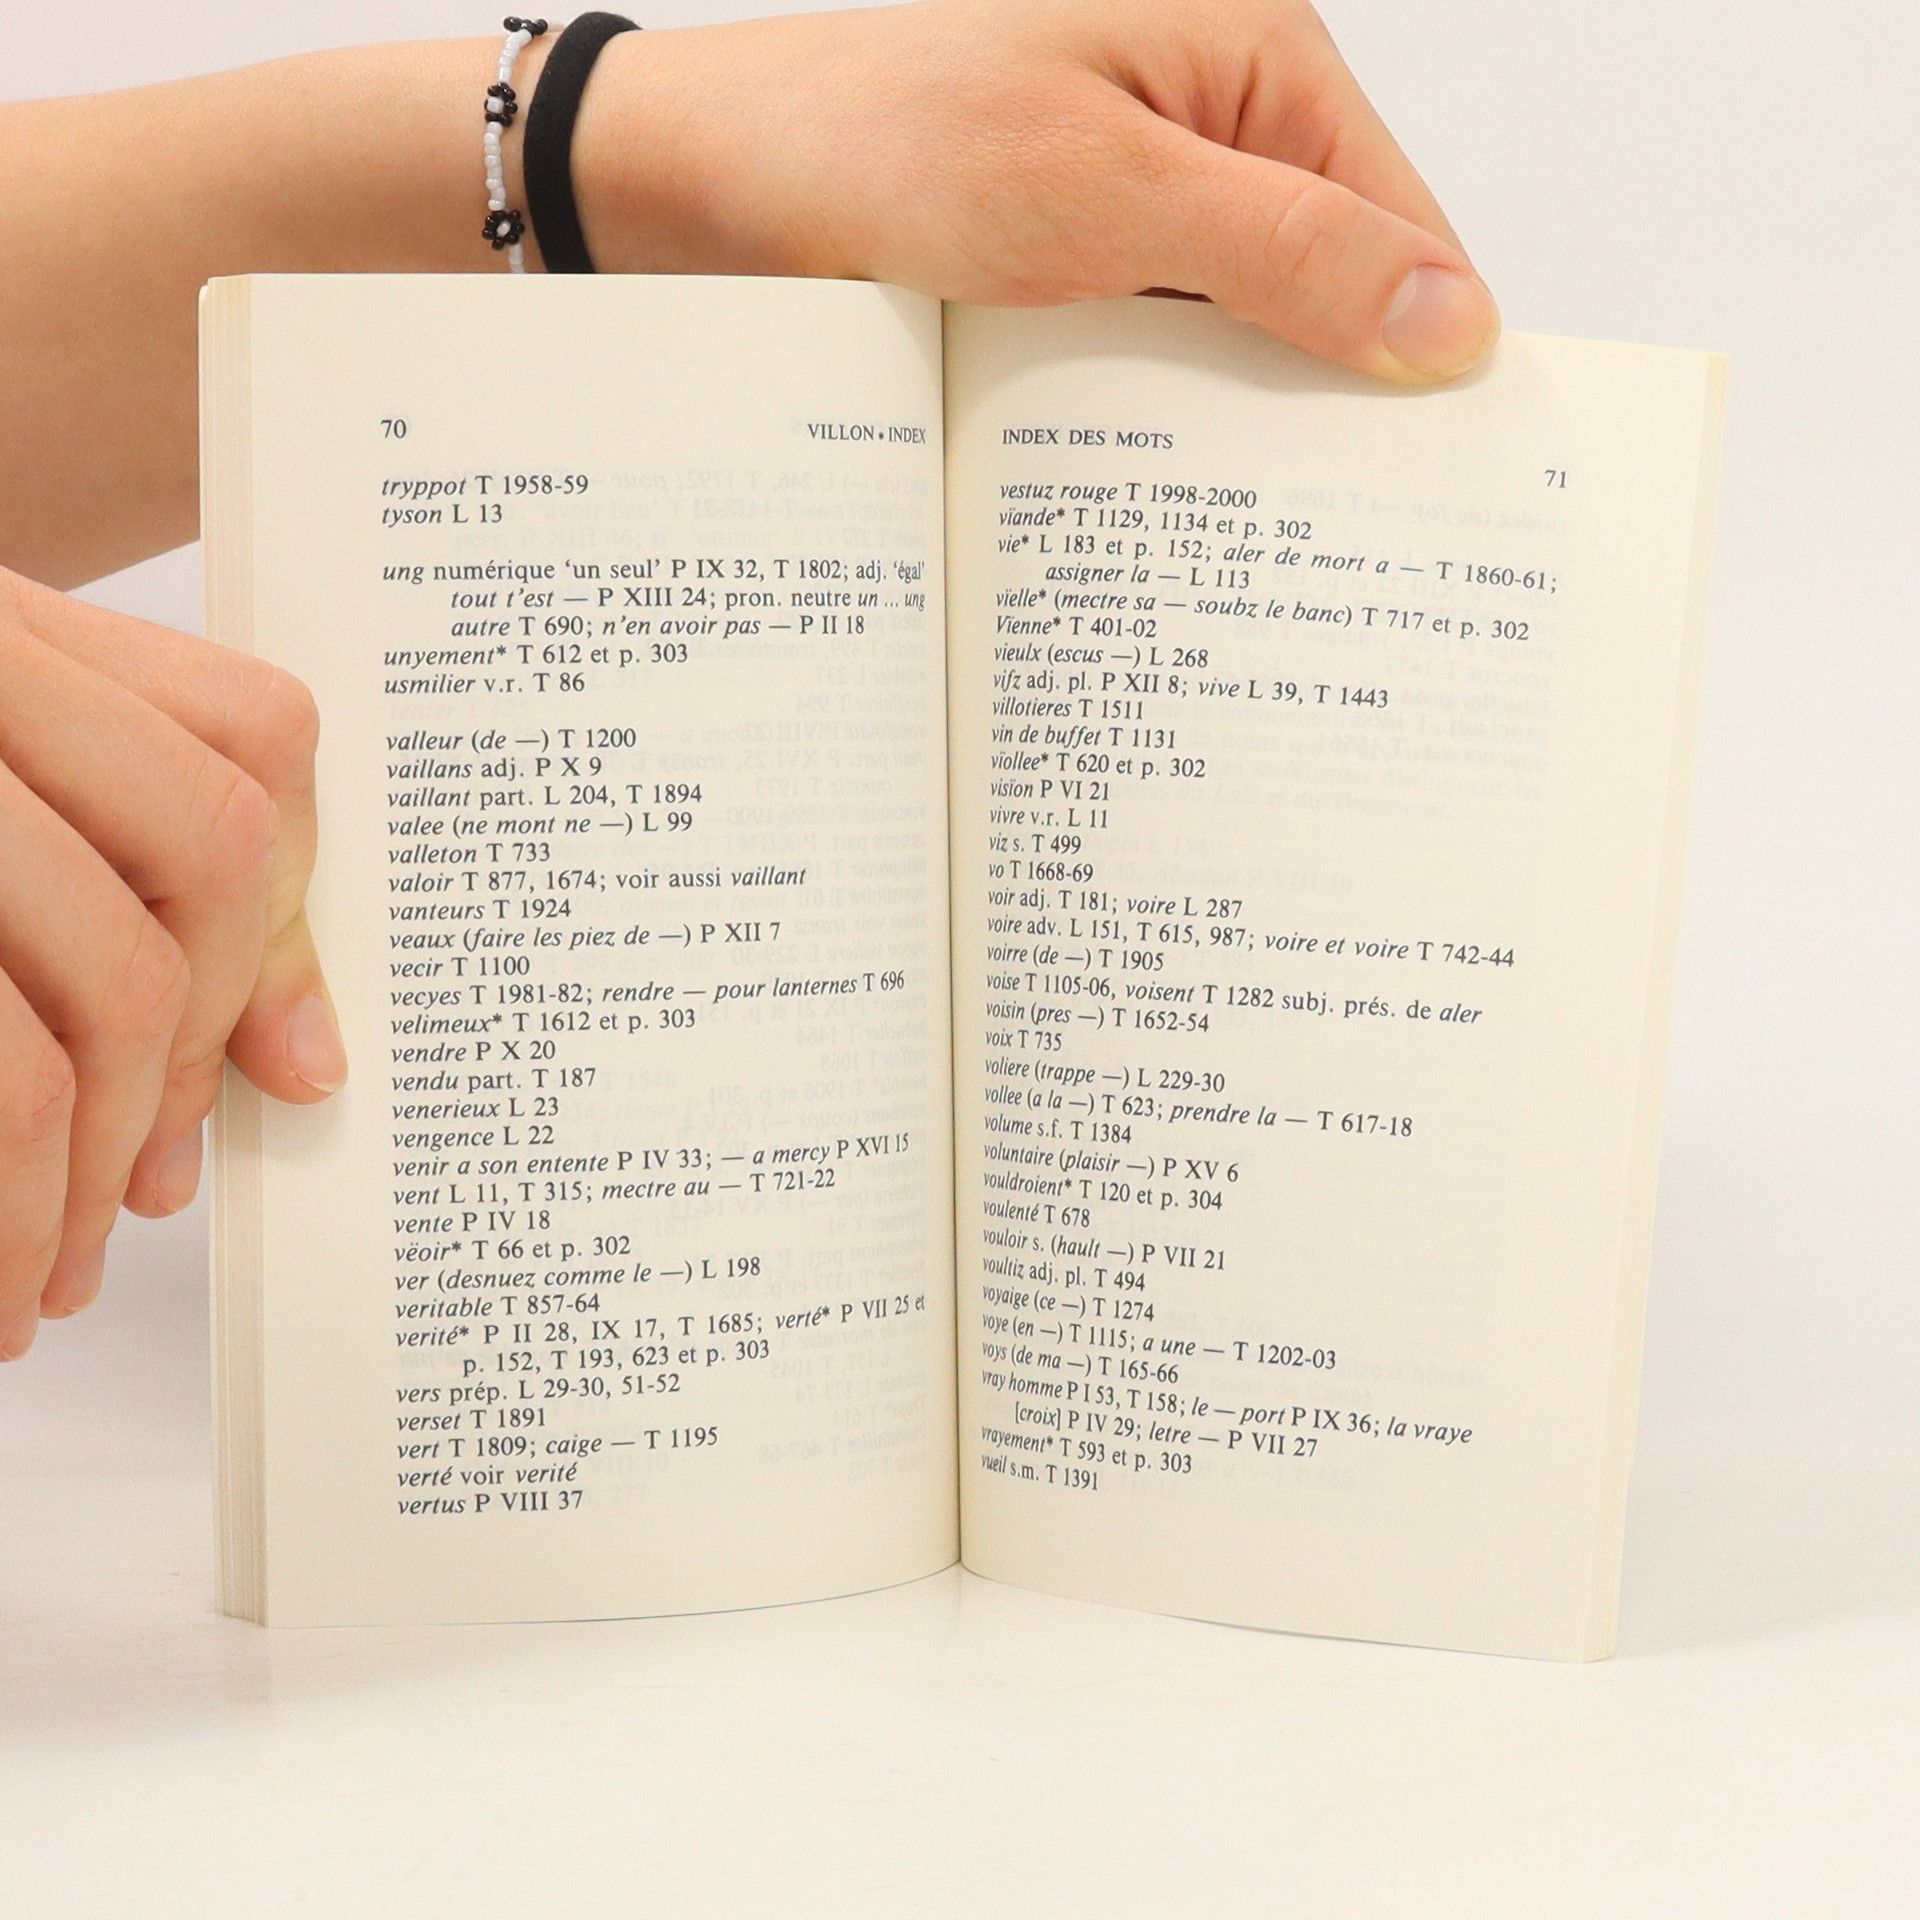 70
VILLON • INDEX
tryppot T 1958-59
tyson L 13
ung numérique ‘un seul’ P IX 32, T 1802; adj. ‘égal’
tout t’est — P XIII 24; pron. neutre un ... ung
autre T 690; n’en avoir pas — P II 18
unyement* T 612 et p. 303
usmilier v.r. T 86
valleur (de —) T 1200
vaillans adj. P X 9
vaillant part. L 204, T 1894
valee (ne mont ne —) L 99
valleton T 733
valoir T 877, 1674; voir aussi vaillant
vanteurs T 1924
veaux (faire les piez de —) P XII 7
vecir T 1100
vecyes T 1981-82; rendre — pour lanternes T 696
velimeux* T 1612 et p. 303
vendre P X 20
vendu part. T 187
venerieux L 23
vengence L 22
venir a son entente P IV 33; — a mercy P XVI 15
vent L 11, T 315; mectre au — T 721-22
vente P IV 18
vëoir* T 66 et p. 302
ver (desnuez comme le —) L 198
veritable T 857-64
verité* P II 28, IX 17, T 1685; verté* P VII 25 et
p. 152, T 193, 623 et p. 303
vers prép. L 29-30, 51-52
verset T 1891
vert T 1809; caige — T 1195
verté voir verité
vertus P VIII 37
INDEX DES MOTS
71
vestuz rouge T 1998-2000
vïande* T 1129, 1134 et p. 302
vie* L 183 et p. 152; aler de mort a — T 1860-61;
assigner la — L 113
vïelle* (mectre sa — soubz le banc) T 717 et p. 302
Vïenne* T 401-02
vieulx (escus —) L 268
vifz adj. pl. P XII 8; vive L 39, T 1443
villotieres T 1511
vin de buffet T 1131
vïollee* T 620 et p. 302
visïon P VI 21
vivre v.r. L 11
viz s. T 499
vo T 1668-69
voir adj. T 181; voire L 287
voire adv. L 151, T 615, 987; voire et voire T 742-44
voirre (de —) T 1905
voise T 1105-06, voisent T 1282 subj. prés. de aler
voisin (pres —) T 1652-54
voix T 735
voliere (trappe —) L 229-30
vollee (a la —) T 623; prendre la — T 617-18
volume s.f. T 1384
voluntaire (plaisir —) P XV 6
vouldroient* T 120 et p. 304
voulenté T 678
vouloir s. (hault —) P VII 21
voultiz adj. pl. T 494
voyaige (ce —) T 1274
voye (en —) T 1115; a une — T 1202-03
voys (de ma —) T 165-66
vray homme P I 53, T 158; le — port P IX 36; la vraye
[croix] P IV 29; letre — P VII 27
vrayement* T 593 et p. 303
vueil s.m. T 1391